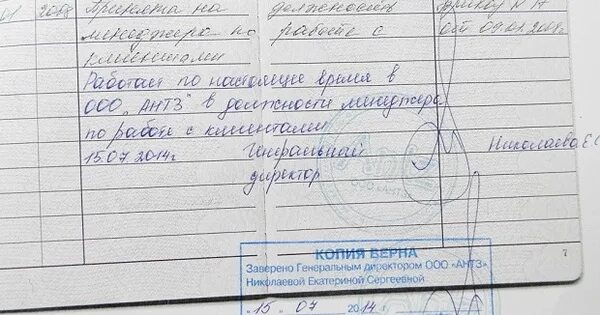 2018 Принята на должность приказ № 17
менеджера по работе с от 09.01.2018
клиентами
Работает по настоящее время в
ООО „АНТЗ" в должности менеджера
по работе с клиентами
15.07.2014г. Генеральный Николаева Е.С
директор
ООО «АНТЗ»
7
КОПИЯ ВЕРНА
Заверено Генеральным директором ООО «АНТЗ»
Николаевой Екатериной Сергеевной
"15" 07 2014 г.